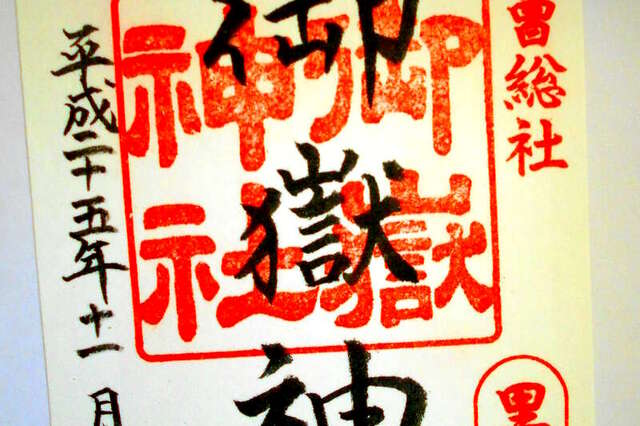 曽総社
黒
御嶽神
御嶽
神社
平成二十五年十一月